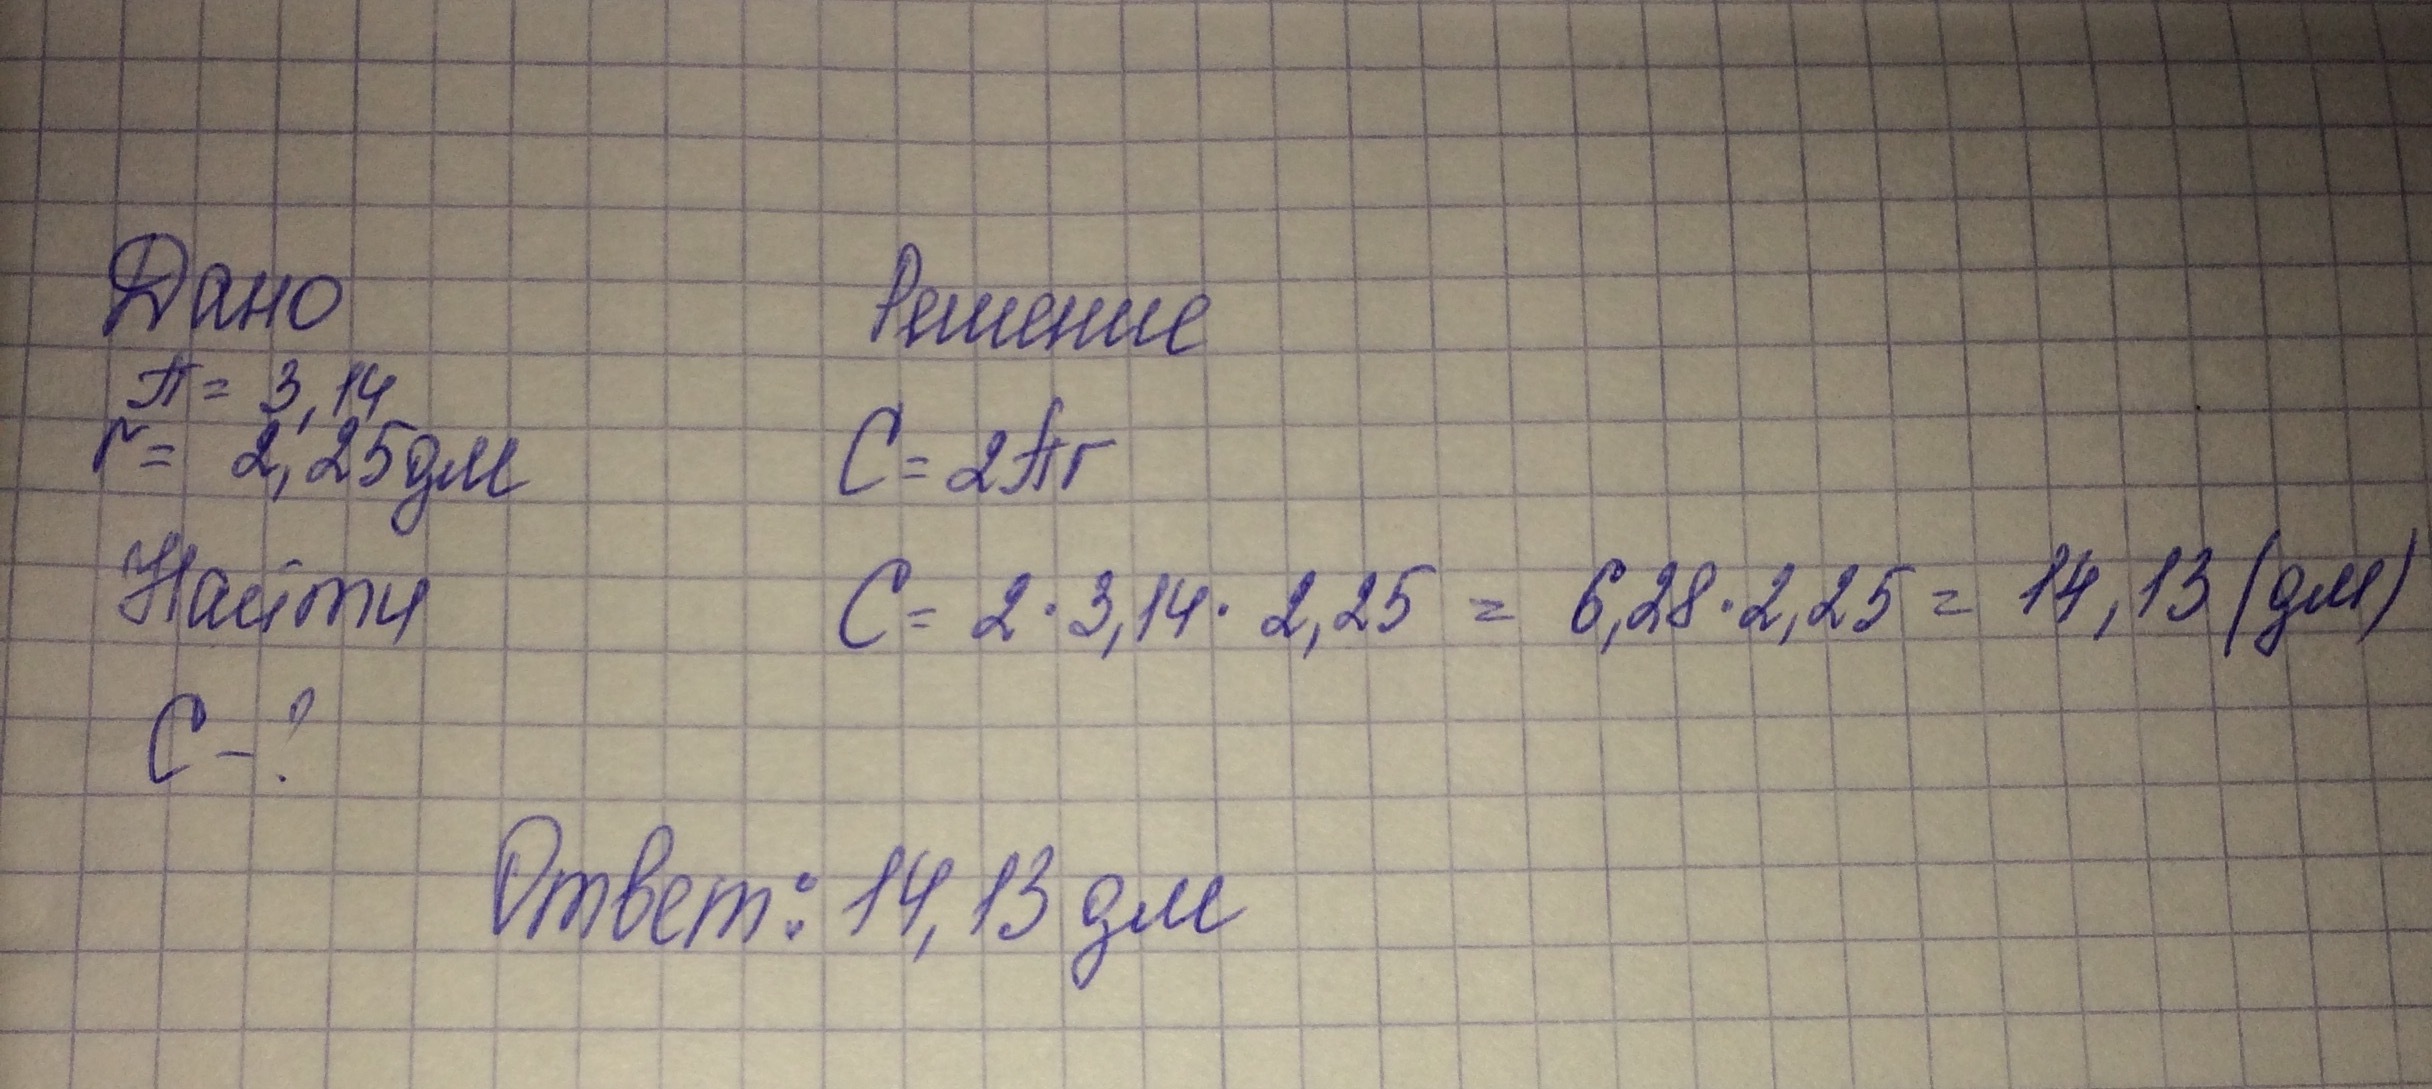 Дано
π = 3,14
r = 2,25 дм
Найти
C - ?
Решение
C = 2πr
C = 2 · 3,14 · 2,25 = 6,28 · 2,25 = 14,13 (дм)
Ответ: 14,13 дм